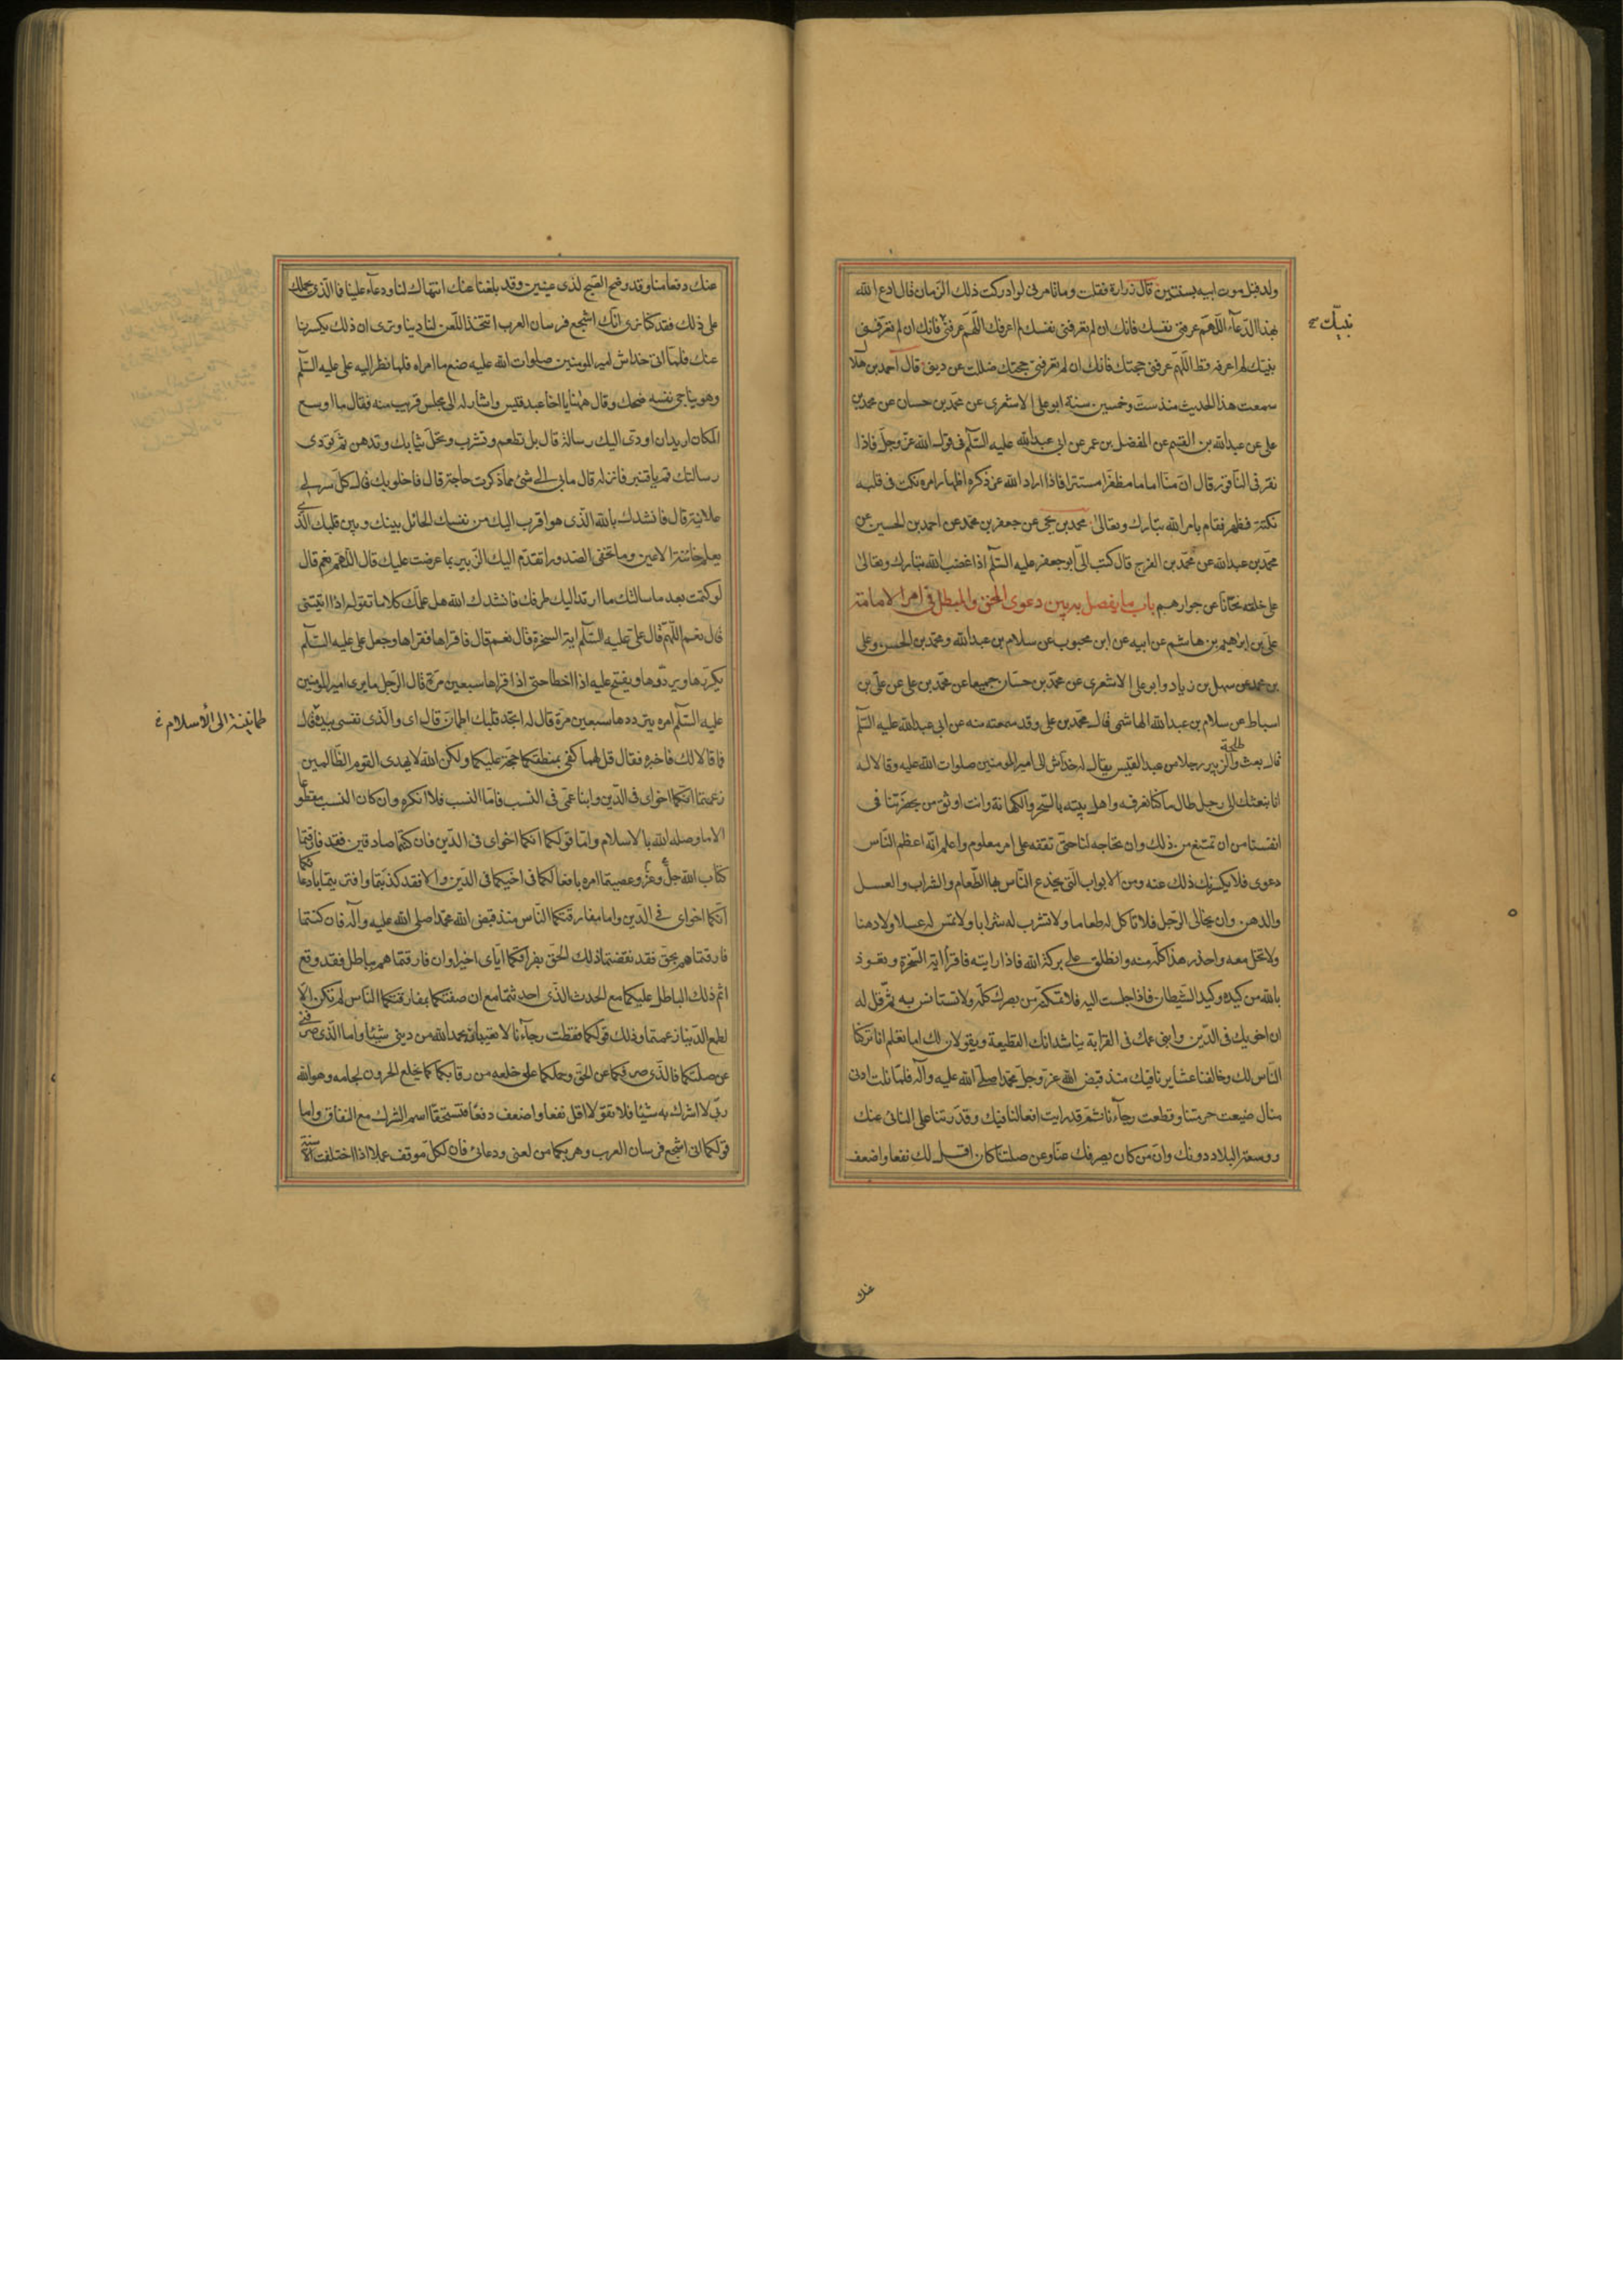 ولد قبل موت ابيه بسنتين قال زرارة فقلت وما تامرنى لو ادركت ذلك الزمان قال ادع الله
بهذا الدّعآء اللّهمّ عرفنى نفسك فانك ان لم تعرفنى نفسك لم اعرفك اللّهمّ عرفنى فانك ان لم تعرفنى
نبيّك لم اعرفه قط اللّهمّ عرفنى حجتك فانك ان لم تعرفنى حجتك ضللت عن دينى قال احمد بن هلال
سمعت هذا الحديث منذ ست وخمسين سنة ابو على الاشعرى عن محمد بن حسان عن محمد بن
على عن عبدالله بن القسم عن المفضل بن عمر عن ابى عبدالله عليه السّلم فى قول الله عزّ وجلّ فاذا
نقر فى الناقور قال انّ منّا اماما مظفرا مستترا فاذا اراد الله عن ذكره اظهار امره نكت فى قلبه
نكتة فظهر فقام بامر الله تبارك وتعالى محمد بن يحيى عن جعفر بن محمد عن احمد بن الحسين عن
محمّد بن عبدالله عن محمّد بن الفرج قال كتب الىّ ابو جعفر عليه السّلم اذا غضب الله تبارك وتعالى
على خلقه نحّانا عن جوارهم باب ما يفصل به بين دعوى المحق والمبطل فى امر الامامة
علىّ بن ابراهيم بن هاشم عن ابيه عن ابن محبوب عن سلام بن عبدالله ومحمّد بن الحسن وعلى
بن محمد عن سهل بن زياد وابو على الاشعرى عن محمّد بن حسّان جميعا عن محمّد بن على عن علىّ بن
اسباط عن سلام بن عبدالله الهاشمى قال محمّد بن على وقد سمعته منه عن ابى عبدالله عليه السّلم
قال بعث طلحة والزبير رجلا من عبد القيس يقال له خداش الى امير المومنين صلوات الله عليه وقالا له
انا نبعثك الى رجل طال ما كنا نعرفه واهل بيته بالسّحر والكهانة وانت اوثق من بحضرتنا فى
انفسنا من ان تمتنع من ذلك وان تحاجه لنا حتى تقفه على امر معلوم واعلم انّه اعظم النّاس
دعوى فلا يكسرنك ذلك عنه ومن الابواب الّتى يخدع النّاس بها الطّعام والشراب والعسل
والدهن وان يخالى الرّجل فلا تاكل له طعاما ولا تشرب له شرابا ولا تمسّ له عسلا ولا دهنا
ولا تخل معه واحذر هذا كلّه منه وانطلق على بركة الله فاذا رايته فاقرأ اية السّخرة وتعوذ
بالله من كيده وكيد الشّيطان فاذا جلست اليه فلا تمكنه من بصرك كلّه ولا تستانس به ثمّ قل له
ان اخويك فى الدّين وابنى عمك فى القرابة يناشدانك القطيعة ويقولان لك اما تعلم انا تركنا
النّاس لك وخالفنا عشايرنا فيك منذ قبض الله عزّ وجلّ محمّدا صلّى الله عليه وآله فلمّا نلت ادنى
منال ضيعت حرمتنا وقطعت رجآءنا ثمّ قد رايت افعالنا فيك وقدرتنا على النائ عنك
وسعة البلاد دونك وانّ من كان يصرفك عنّا وعن صلتنا كان اقل لك نفعا واضعف
عنك
نبيّك
عنك دفعا منا وقد وضح الصّبح لذى عينين وقد بلغنا عنك انتهاك لنا ودعآء علينا فما الّذى يحملك
على ذلك فقد كنا نرى انّك اشجع فرسان العرب اتتخذ اللّعن لنا دينا وترى ان ذلك يكسرنا
عنك فلمّا اتى خداش امير المومنين صلوات الله عليه صنع ما امراه فلما نظر اليه على عليه السّلم
وهو يناجى نفسه ضحك وقال ههنا يا اخا عبد قيس واشار له الى مجلس قريب منه فقال ما اوسع
المكان اريد ان اودى اليك رسالة قال بل تطعم وتشرب وتحلّ ثيابك وتدهن ثمّ تودى
رسالتك قم يا قنبر فانزله قال مابى الى شئ مما ذكرت حاجة قال فاخلو بك قال كلّ سر لى
علانية قال فانشدك بالله الّذى هو اقرب اليك من نفسك الحائل بينك وبين قلبك الّذى
يعلم خائنة الاعين وما تخفى الصّدور اتقدّم اليك الزّبير بما عرضت عليك قال اللّهمّ نعم قال
لو كتمت بعد ما سالتك ما ارتدّ اليك طرفك فانشدك الله هل علّمك كلاما تقوله اذا اتيتنى
قال نعم اللّهمّ قال علىّ عليه السّلم اية السخرة قال نعم قال فاقراها فقراها وجعل على عليه السّلم
يكررها ويردّدها ويفتح عليه اذا اخطا حتى اذا قراها سبعين مرّة قال الرّجل ما يرى امير المومنين
عليه السّلم امره بترددها سبعين مرّة قال له اتجد قلبك اطمانّ قال اى والّذى نفسى بيده قال
فما قالا لك فاخبره فقال قل لهما كفى بمنطقكما حجّة عليكما ولكن الله لا يهدى القوم الظّالمين
زعمتما انكما اخواى فى الدّين وابنا عمّى فى النّسب فامّا النسب فلا انكره وان كان النسب مقطوعا
الا ما وصله الله بالاسلام وامّا قولكما انكما اخواى فى الدّين فان كنتما صادقين فقد فارقتما
كتاب الله جلّ وعزّ وعصيتما امره بافعالكما فى اخيكما فى الدّين والا فقد كذبتما وافتريتما بادعائكما
انّكما اخواى فى الدّين واما مفارقتكما النّاس منذ قبض الله محمّدا صلى الله عليه وآله فان كنتما
فارقتماهم بحقّ فقد نقضتما ذلك الحقّ بفراقكما ايّاى اخيرا وان فارقتماهم بباطل فقد وقع
اثم ذلك الباطل عليكما مع الحدث الّذى احدثتما مع ان صفقتكما بمفارقتكما النّاس لم تكن الّا
لطمع الدّنيا زعمتما وذلك قولكما فقطعت رجآءنا لا تعيبان بحمد الله من دينى شيئا واما الّذى صرفنى
عن صلتكما فالّذى صرفكما عن الحقّ وحملكما على خلعه من رقابكما كما يخلع الحرون لجامه وهو الله
ربّى لا اشرك به شيئا فلا تقولا اقل نفعا واضعف دفعا فتستحقّا اسم الشرك مع النفاق واما
قولكما انى اشجع فرسان العرب وهربكما من لعنى ودعائى فان لكلّ موقف عملا اذا اختلفت الاسنّة
طمانينة الى الاسلام